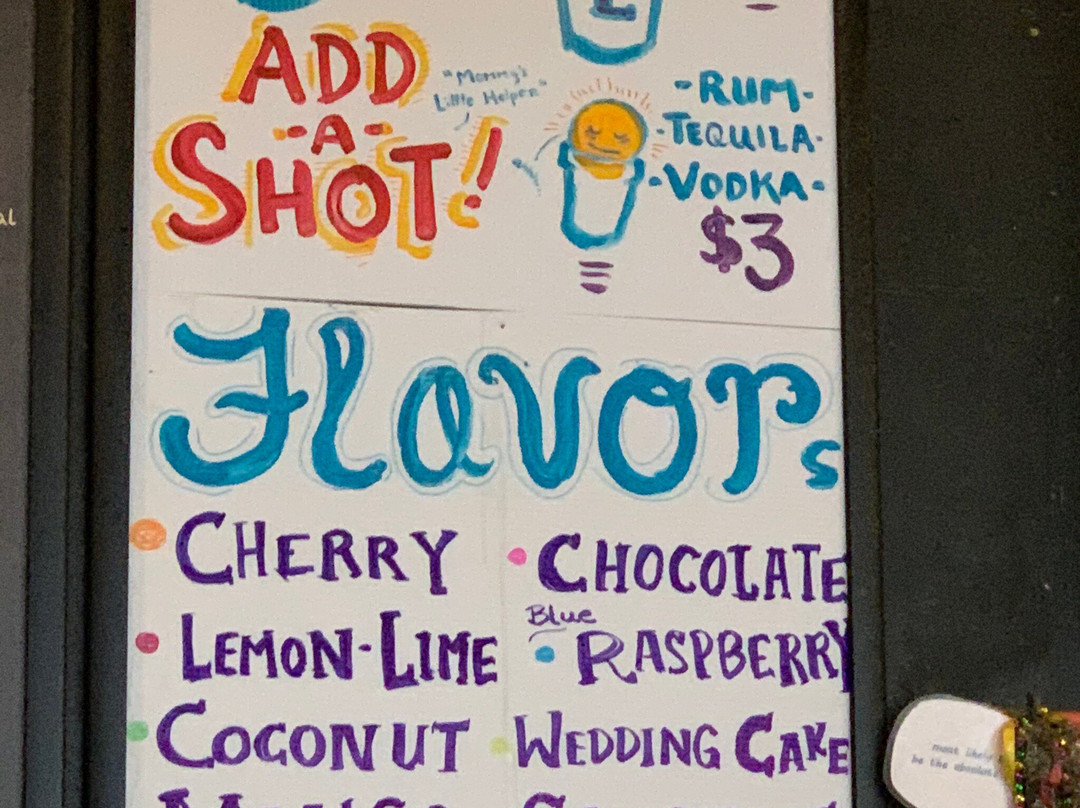 ADD
-A-
SHOT!
"Mommy's
Little Helper"
-RUM-
·TEQUILA·
·VODKA·
$3
Flavors
• CHERRY
• LEMON-LIME
• COCONUT
• CHOCOLATE
Blue
• RASPBERRY
• WEDDING CAKE
most likely
be the absolute
al